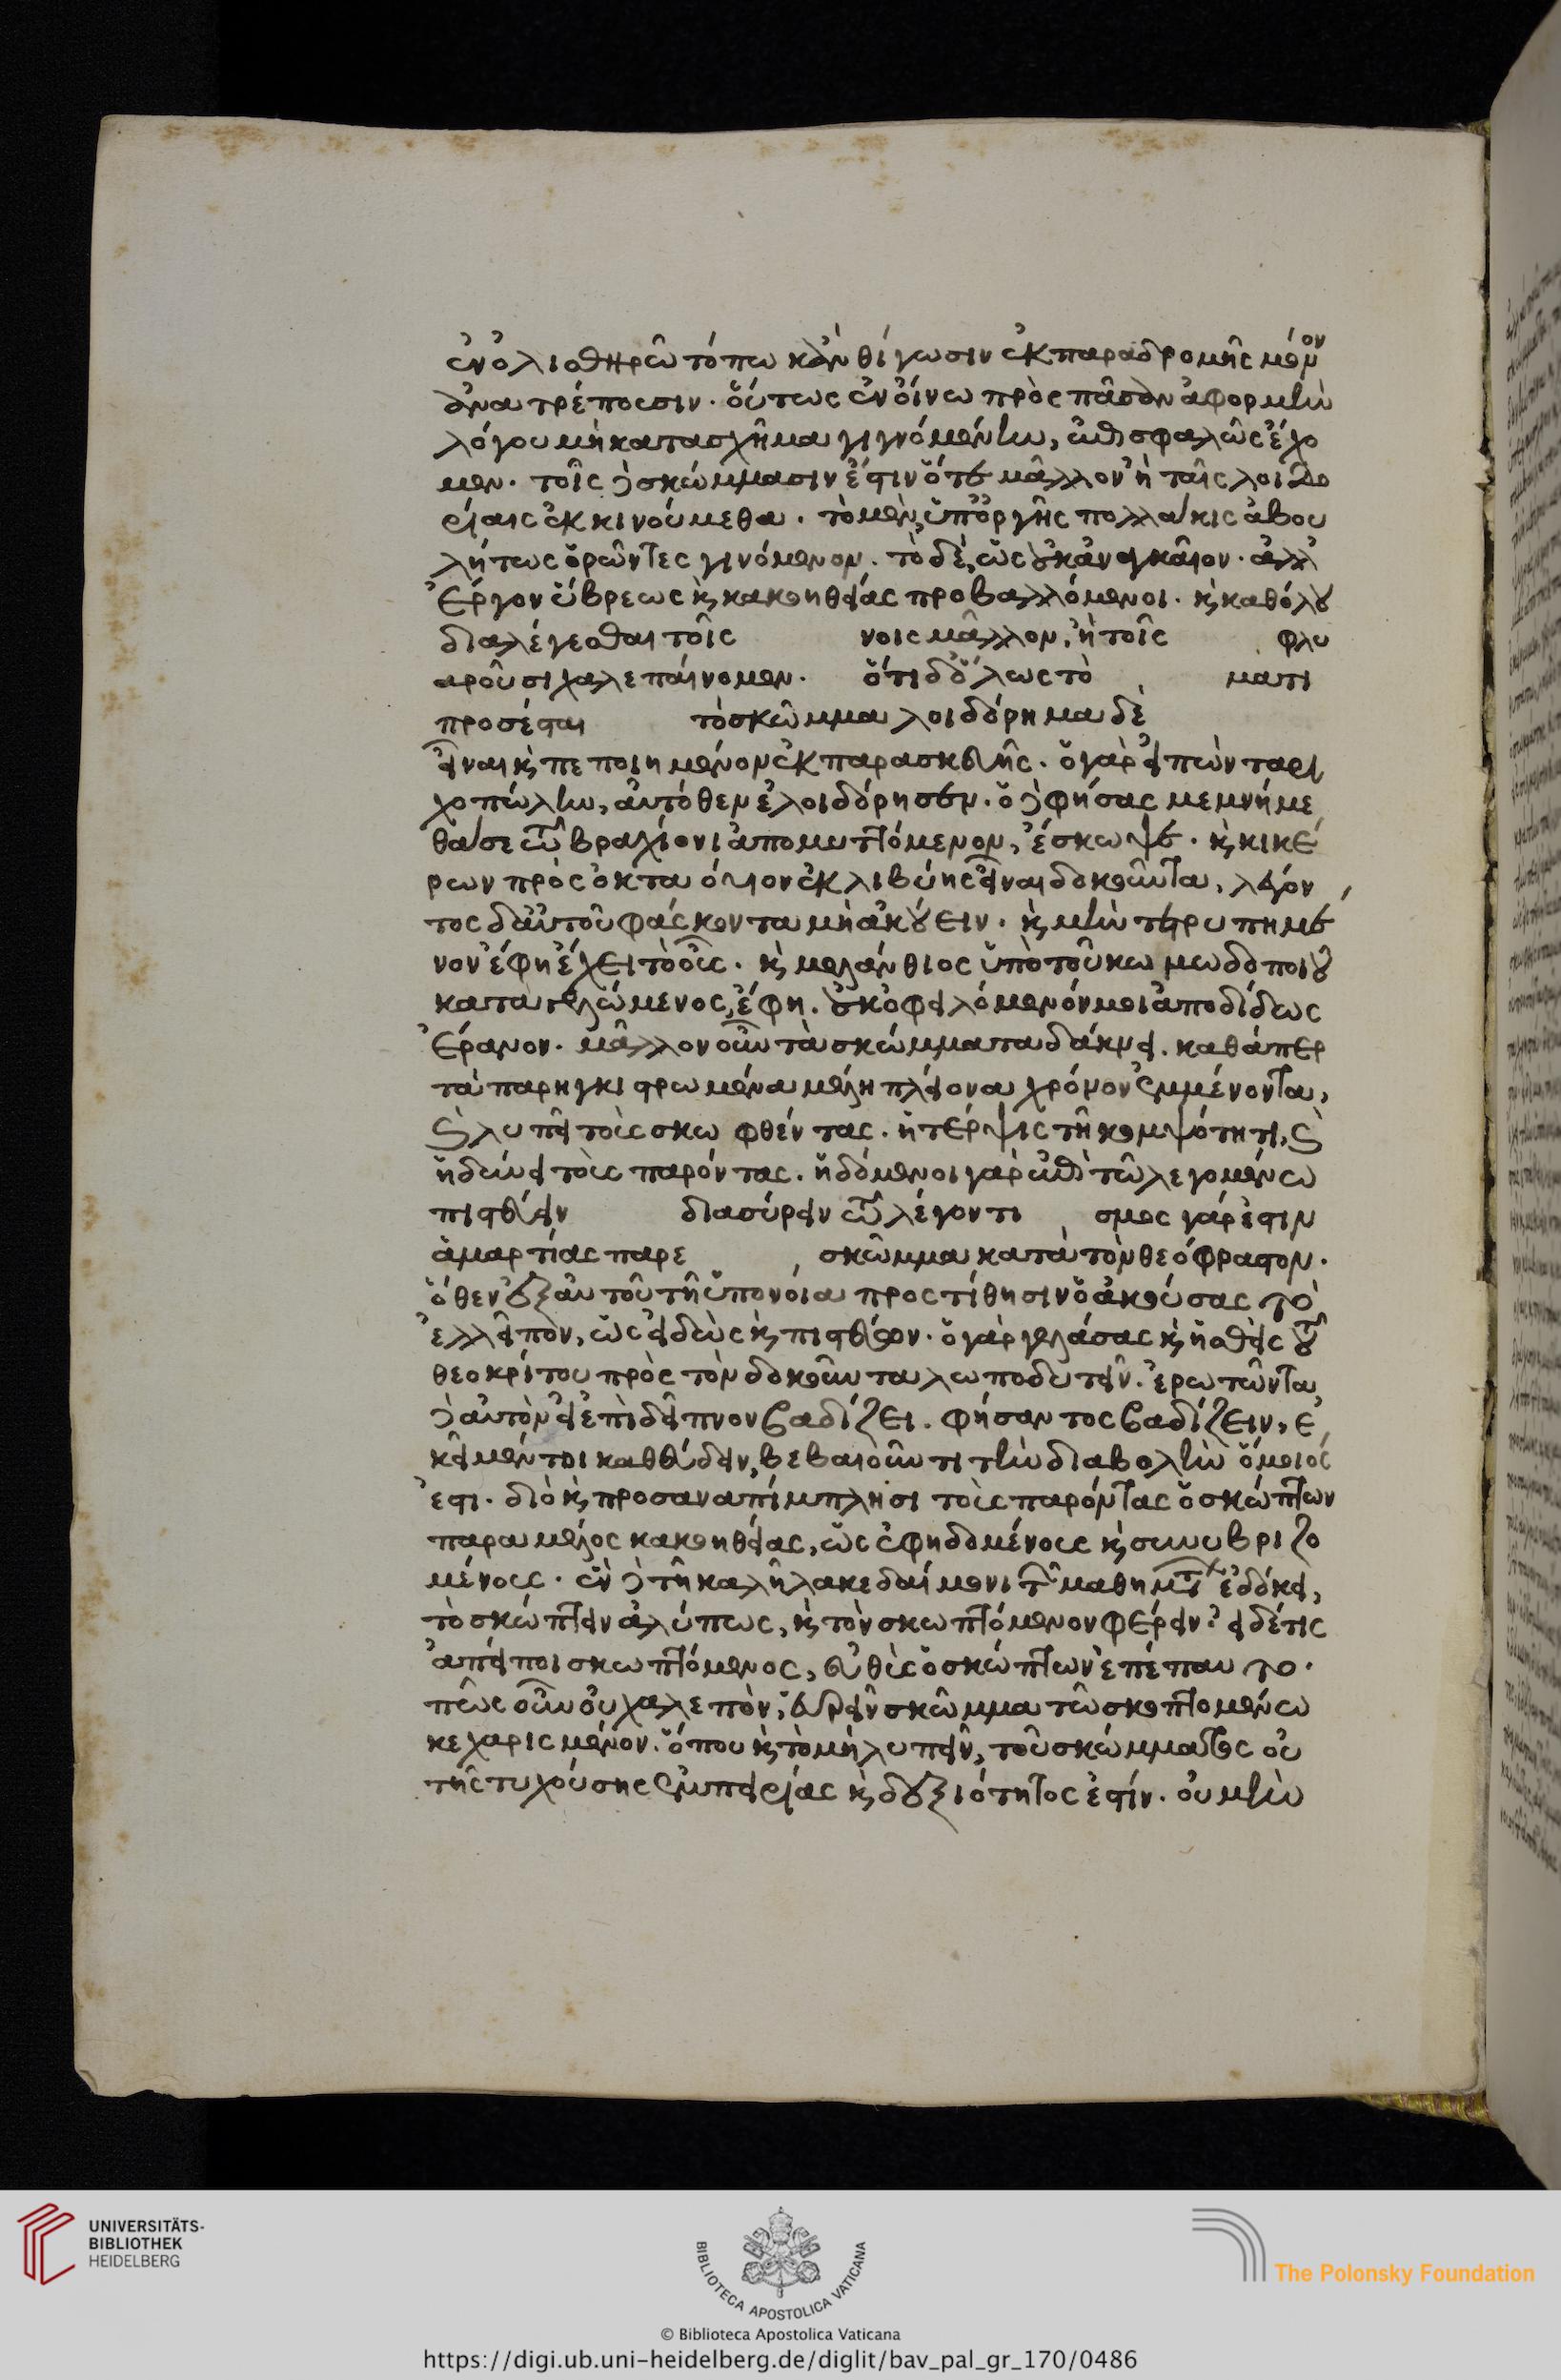 ἐν ὀλισθηρῶ τόπω κἂν θίγωσιν ἐκ παραδρομῆς μόνον
ἀνατρέπουσιν. οὕτως ἐν οἴνω πρὸς πᾶσαν ἀφορμὴν
λόγου μὴ κατασχῆμα γιγνομένην, ἐπισφαλῶς ἔχο
μεν. τοῖς δὲ σκώμμασιν ἔστιν ὅτε μᾶλλον ἢ ταῖς λοιδο
ρίαις ἐκκινούμεθα. τὸ μὲν, ὑπ' ὀργῆς πολλάκις ἀβου
λήτως ὁρῶντες γινόμενον. τὸ δὲ, ὡς οὐκ ἀναγκαῖον. ἀλλ'
ἔργον ὕβρεως καὶ κακοηθείας προβαλλόμενοι. καὶ καθόλου
διαλέγεσθαι τοῖς νοις μᾶλλον, ἢ τοῖς φλυ
αροῦσι χαλεπαίνομεν. ὅτι δ' ὅλως τὸ ματι
προσέσται τὸ σκῶμμα λοιδόρημα δὲ
εἶναι καὶ πεποιημένον ἐκ παρασκευῆς. ὁ γὰρ εἰπὼν ταρι
χοπώλην, αὐτόθεν ἐλοιδόρησεν. ὁ δὲ φήσας μεμνήμε
θά σε τῶ βραχίονι ἀπομυττόμενον, ἔσκωψε. καὶ κικέ
ρων πρὸς ὀκταόυιον ἐκ λιβύης εἶναι δοκοῦντα, λέγον
τος δ' αὐτοῦ φάσκοντα μὴ ἀκούειν. καὶ μὴν τετρυπημέ
νον ἔφη ἔχει τὸ οὖς. καὶ μελάνθιος ὑπὸ τοῦ κωμωδοποιοῦ
καταγελώμενος, ἔφη. οὐκ ὀφειλόμενόν μοι ἀποδίδως
ἔρανον. μᾶλλον οὖν τὰ σκώμματα δάκνει. καθάπερ
τὰ παρηγκιστρωμένα μέλη πλείονα χρόνον ἐμμένοντα,
καὶ λυπεῖ τοὺς σκωφθέντας. ἡ τέρψις τῆ κομψότητι, καὶ
ἡδύνει τοὺς παρόντας. ἡδόμενοι γὰρ ἐπὶ τῶ λεγομένω
πιστεύειν διασύρειν τῶ λέγοντι σμος γάρ ἐστιν
ἁμαρτίας παρε σκῶμμα κατὰ τὸν θεόφραστον.
ὅθεν ἐξ αὐτοῦ τῆ ὑπονοία προστίθησιν ὁ ἀκούσας τὸ
ἐλλεῖπον, ὡς εἰδὼς καὶ πιστεύων. ὁ γὰρ γελάσας καὶ ἡσθεὶς τοῦ
θεοκρίτου πρὸς τὸν δοκοῦντα λωποδυτεῖν. ἐρωτῶντα
δὲ αὐτὸν εἰ ἐπὶ δεῖπνον βαδίζει. φήσαντος βαδίζειν, ἐ
κεῖ μέντοι καθεύδειν, βεβαιοῦντι τὴν διαβολὴν ὅμοιός
ἐστι. διὸ καὶ προσαναπίμπλησι τοὺς παρόντας ὁ σκώπτων
παρὰ μέλος κακοηθείας, ὡς ἐφηδομένους καὶ συνυβριζο
μένους. ἐν δὲ τῆ καλῆ λακεδαίμονι τῶν μαθημάτων ἐδόκει,
τὸ σκώπτειν ἀλύπως, καὶ τὸν σκωπτόμενον φέρειν. εἰ δέ τις
ἀπείποι σκωπτόμενος, εὐθὺς ὁ σκώπτων ἐπέπαυτο.
πῶς οὖν οὐ χαλεπὸν, εὑρεῖν σκῶμμα τῶ σκοπτομένω
κεχαρισμένον. ὅπου καὶ τὸ μὴ λυπεῖν, τοῦ σκώμματος οὐ
τῆς τυχούσης ἐμπειρίας καὶ δεξιότητος ἐστίν. οὐ μὴν
UNIVERSITÄTS-
BIBLIOTHEK
HEIDELBERG
BIBLIOTECA APOSTOLICA VATICANA
The Polonsky Foundation
© Biblioteca Apostolica Vaticana
https://digi.ub.uni-heidelberg.de/diglit/bav_pal_gr_170/0486